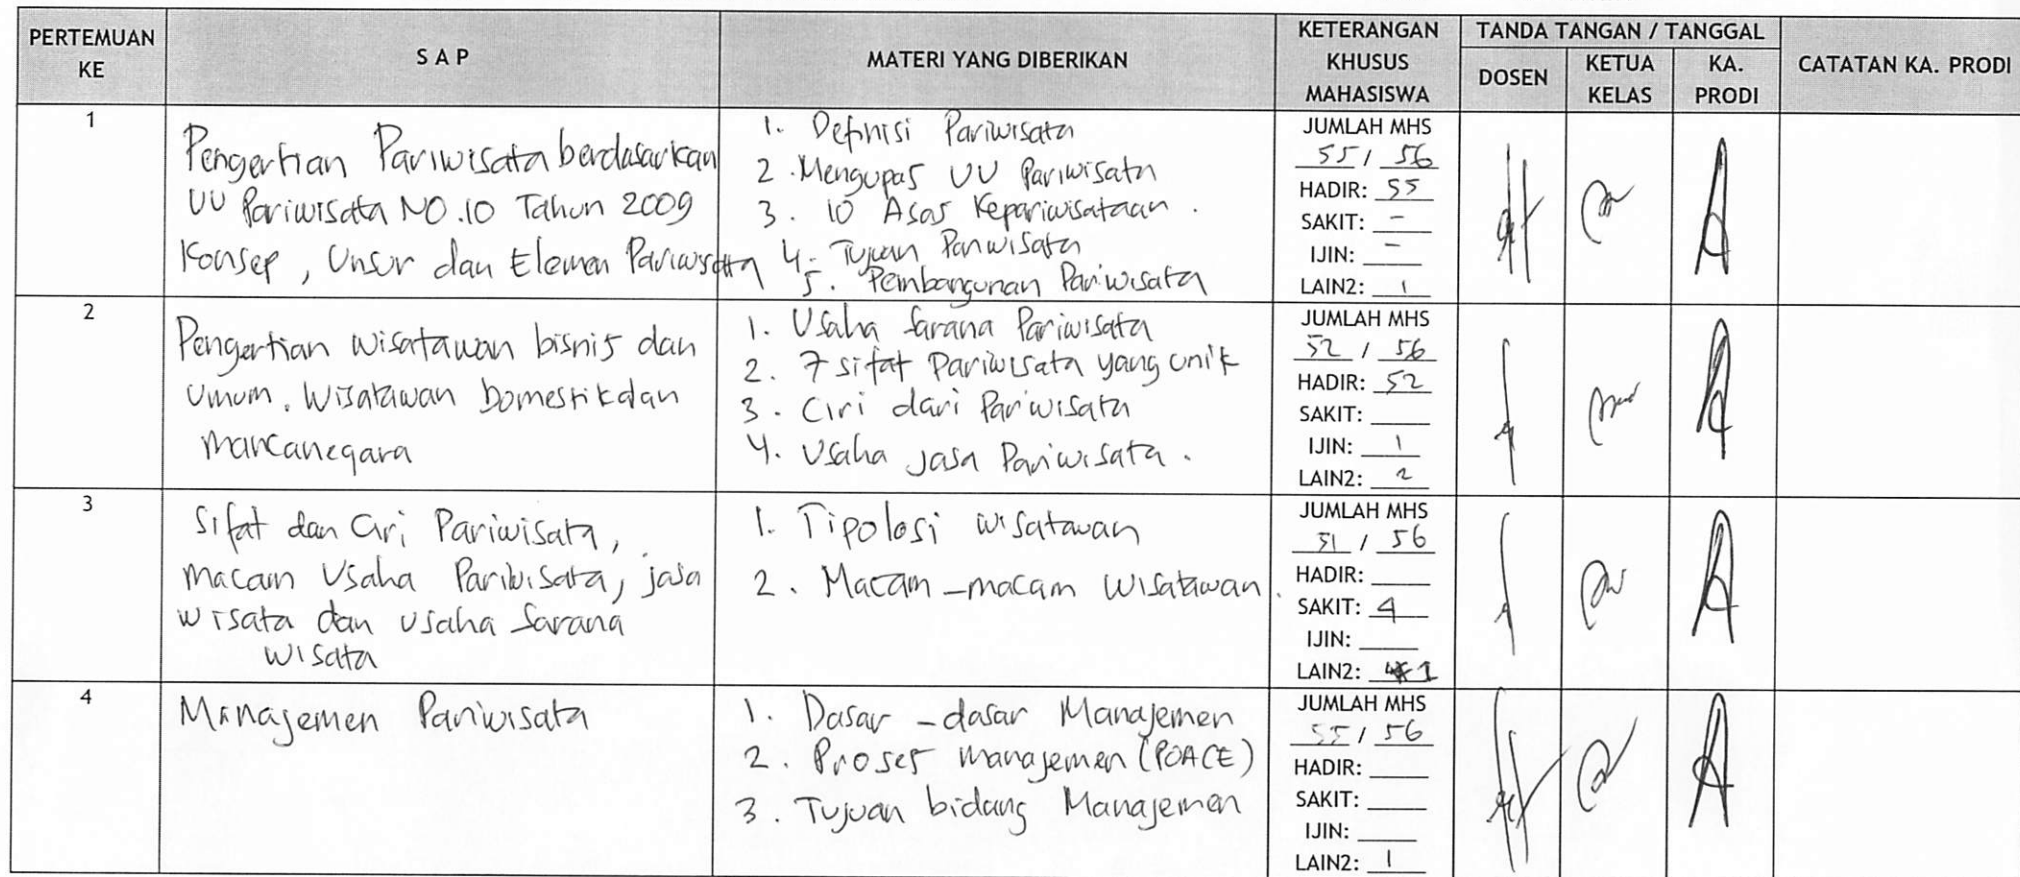 PERTEMUAN KE
S A P
MATERI YANG DIBERIKAN
KETERANGAN KHUSUS MAHASISWA
TANDA TANGAN / TANGGAL
DOSEN
KETUA KELAS
KA. PRODI
CATATAN KA. PRODI
1
Pengertian Pariwisata berdasarkan
UU Pariwisata NO.10 Tahun 2009
Konsep, Unsur dan Elemen Pariwisata
1. Definisi Pariwisata
2. Mengupas UU Pariwisata
3. 10 Asas Kepariwisataan.
4. Tujuan Pariwisata
5. Pembangunan Pariwisata
JUMLAH MHS
55 / 56
HADIR: 55
SAKIT: -
IJIN: -
LAIN2: 1
2
Pengertian Wisatawan bisnis dan
Umum, Wisatawan Domestik dan
Mancanegara
1. Usaha Sarana Pariwisata
2. 7 sifat Pariwisata yang unik
3. Ciri dari Pariwisata
4. Usaha Jasa Pariwisata.
JUMLAH MHS
52 / 56
HADIR: 52
SAKIT:
IJIN: 1
LAIN2: 2
3
Sifat dan Ciri Pariwisata,
Macam Usaha Pariwisata, jasa
wisata dan usaha Sarana
wisata
1. Tipologi wisatawan
2. Macam-macam Wisatawan.
JUMLAH MHS
51 / 56
HADIR:
SAKIT: 4
IJIN:
LAIN2: 1
4
Manajemen Pariwisata
1. Dasar-dasar Manajemen
2. Proses Manajemen (POACE)
3. Tujuan bidang Manajemen
JUMLAH MHS
55 / 56
HADIR:
SAKIT:
IJIN:
LAIN2: 1